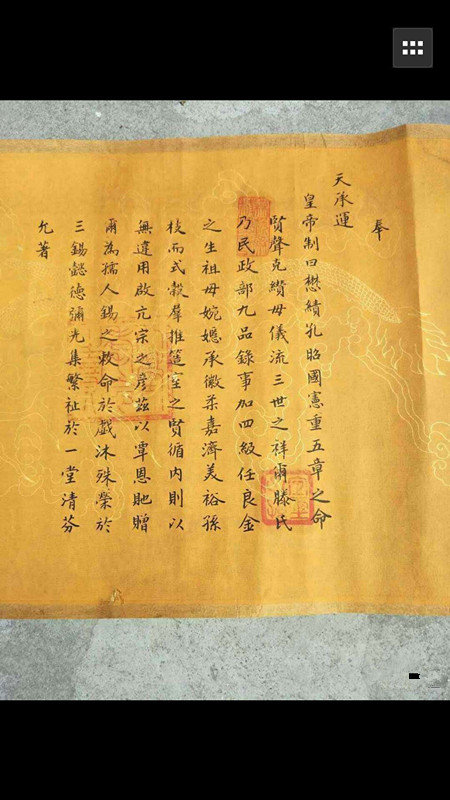 奉
天承運
皇帝制曰懋績孔昭國憲重五章之命
賢聲克纘母儀流三世之祥爾滕氏
乃民政部九品錄事加四級任良金
之生祖母婉嫕承徽柔嘉濟美裕孫
枝而式穀羣推簉室之賢循内則以
無違用啟亢宗之彥茲以覃恩貤贈
爾為孺人錫之敕命於戲沐殊榮於
三錫懿德彌光集繁祉於一堂清芬
允著